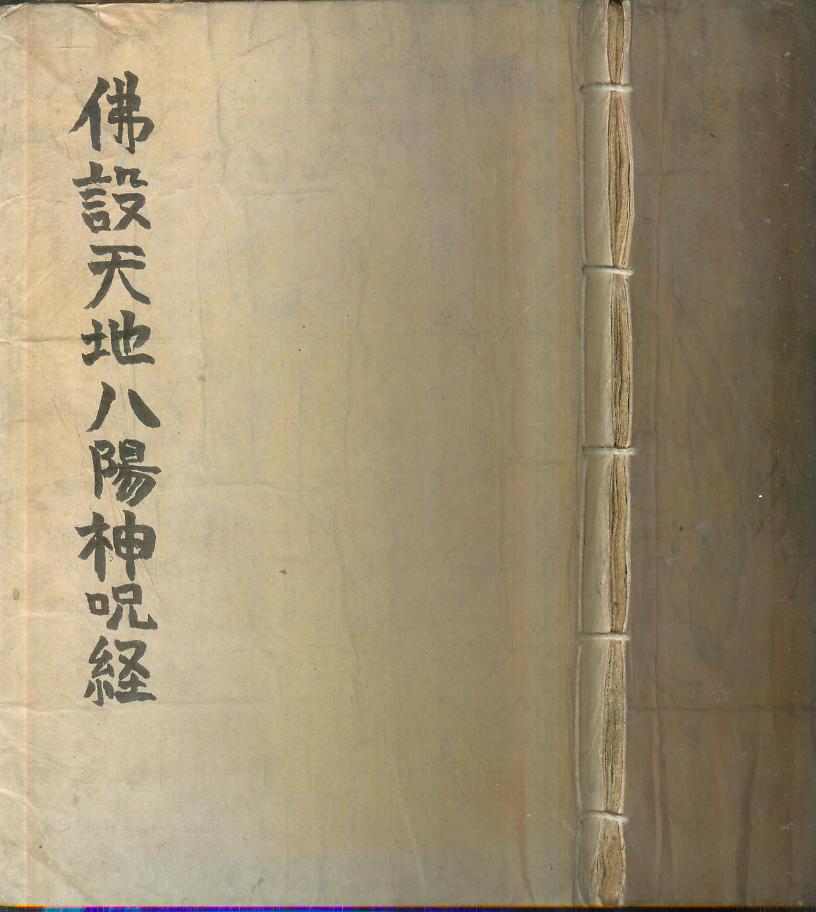 佛設天地八陽神呪経